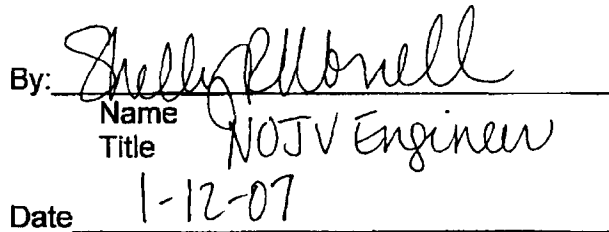 By: Shelly
Name
Title NOJV Engineer
Date 1-12-07